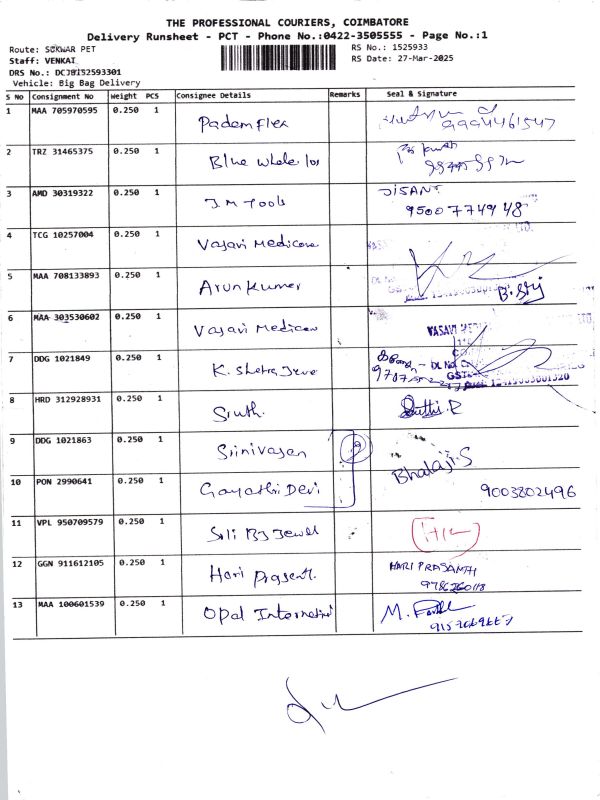 THE PROFESSIONAL COURIERS, COIMBATORE
Delivery Runsheet - PCT - Phone No.:0422-3505555 - Page No.:1
Route: SOKWAR PET
RS No.: 1525933
Staff: VENKAT
RS Date: 27-Mar-2025
DRS No.: DCJB152593301
Vehicle: Big Bag Delivery
S No Consignment No Weight PCS Consignee Details Remarks Seal & Signature
1 MAA 705970595 0.250 1 Padem flex
9994461547
2 TRZ 31465375 0.250 1 Blue whale
3 AMD 30319322 0.250 1 J.M Tools JISANT
9500774948
4 TCG 10257004 0.250 1 Vasavi Medicare
5 MAA 708133893 0.250 1 Arun Kumar
6 MAA 303530602 0.250 1 Vasavi VASAVI
7 DDG 1021849 0.250 1 K.
8 HRD 312928931 0.250 1
9 DDG 1021863 0.250 1 Srinivasan Bhalaji.S
10 PON 2990641 0.250 1 Gayathri Devi 9003802496
11 VPL 950709579 0.250 1
12 GGN 911612105 0.250 1 Hari Prasanth HARI PRASANTH
13 MAA 100601539 0.250 1 Opal